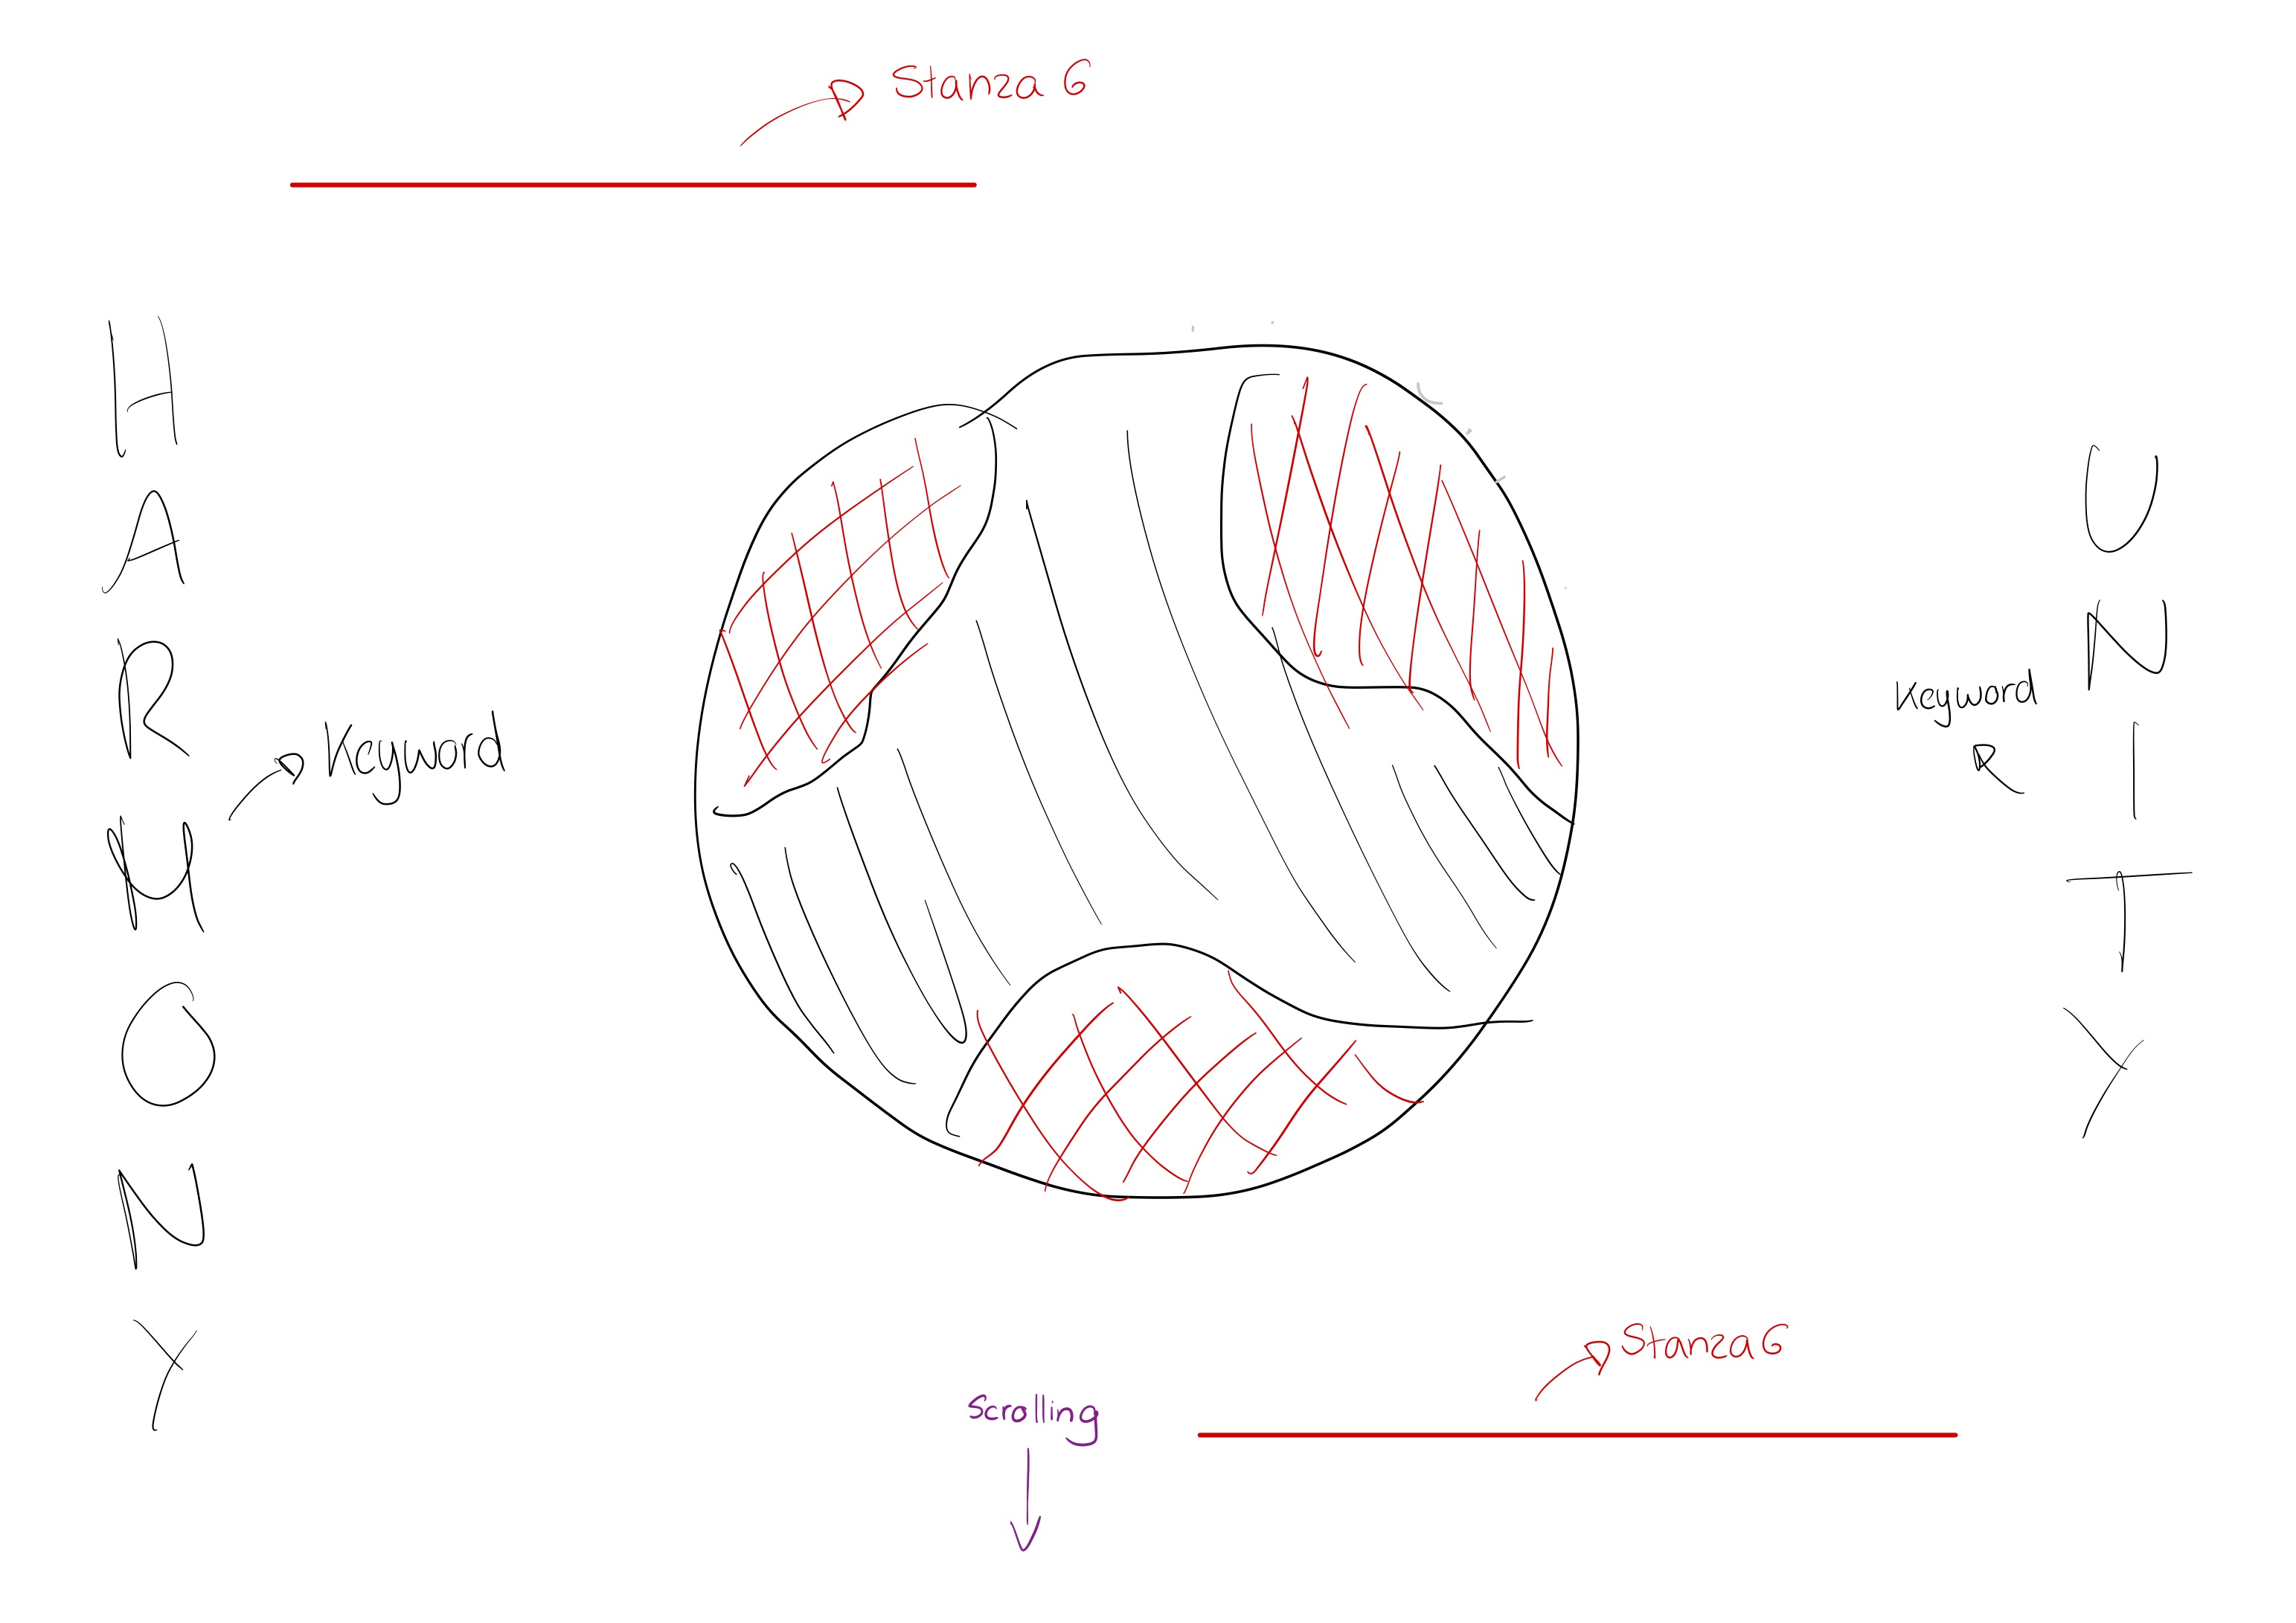 Stanza 6
HARMONY
Keyword
Keyword
UNITY
Stanza 6
Scrolling